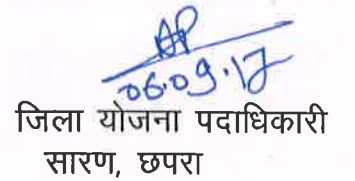 06.09.17
जिला योजना पदाधिकारी
सारण, छपरा